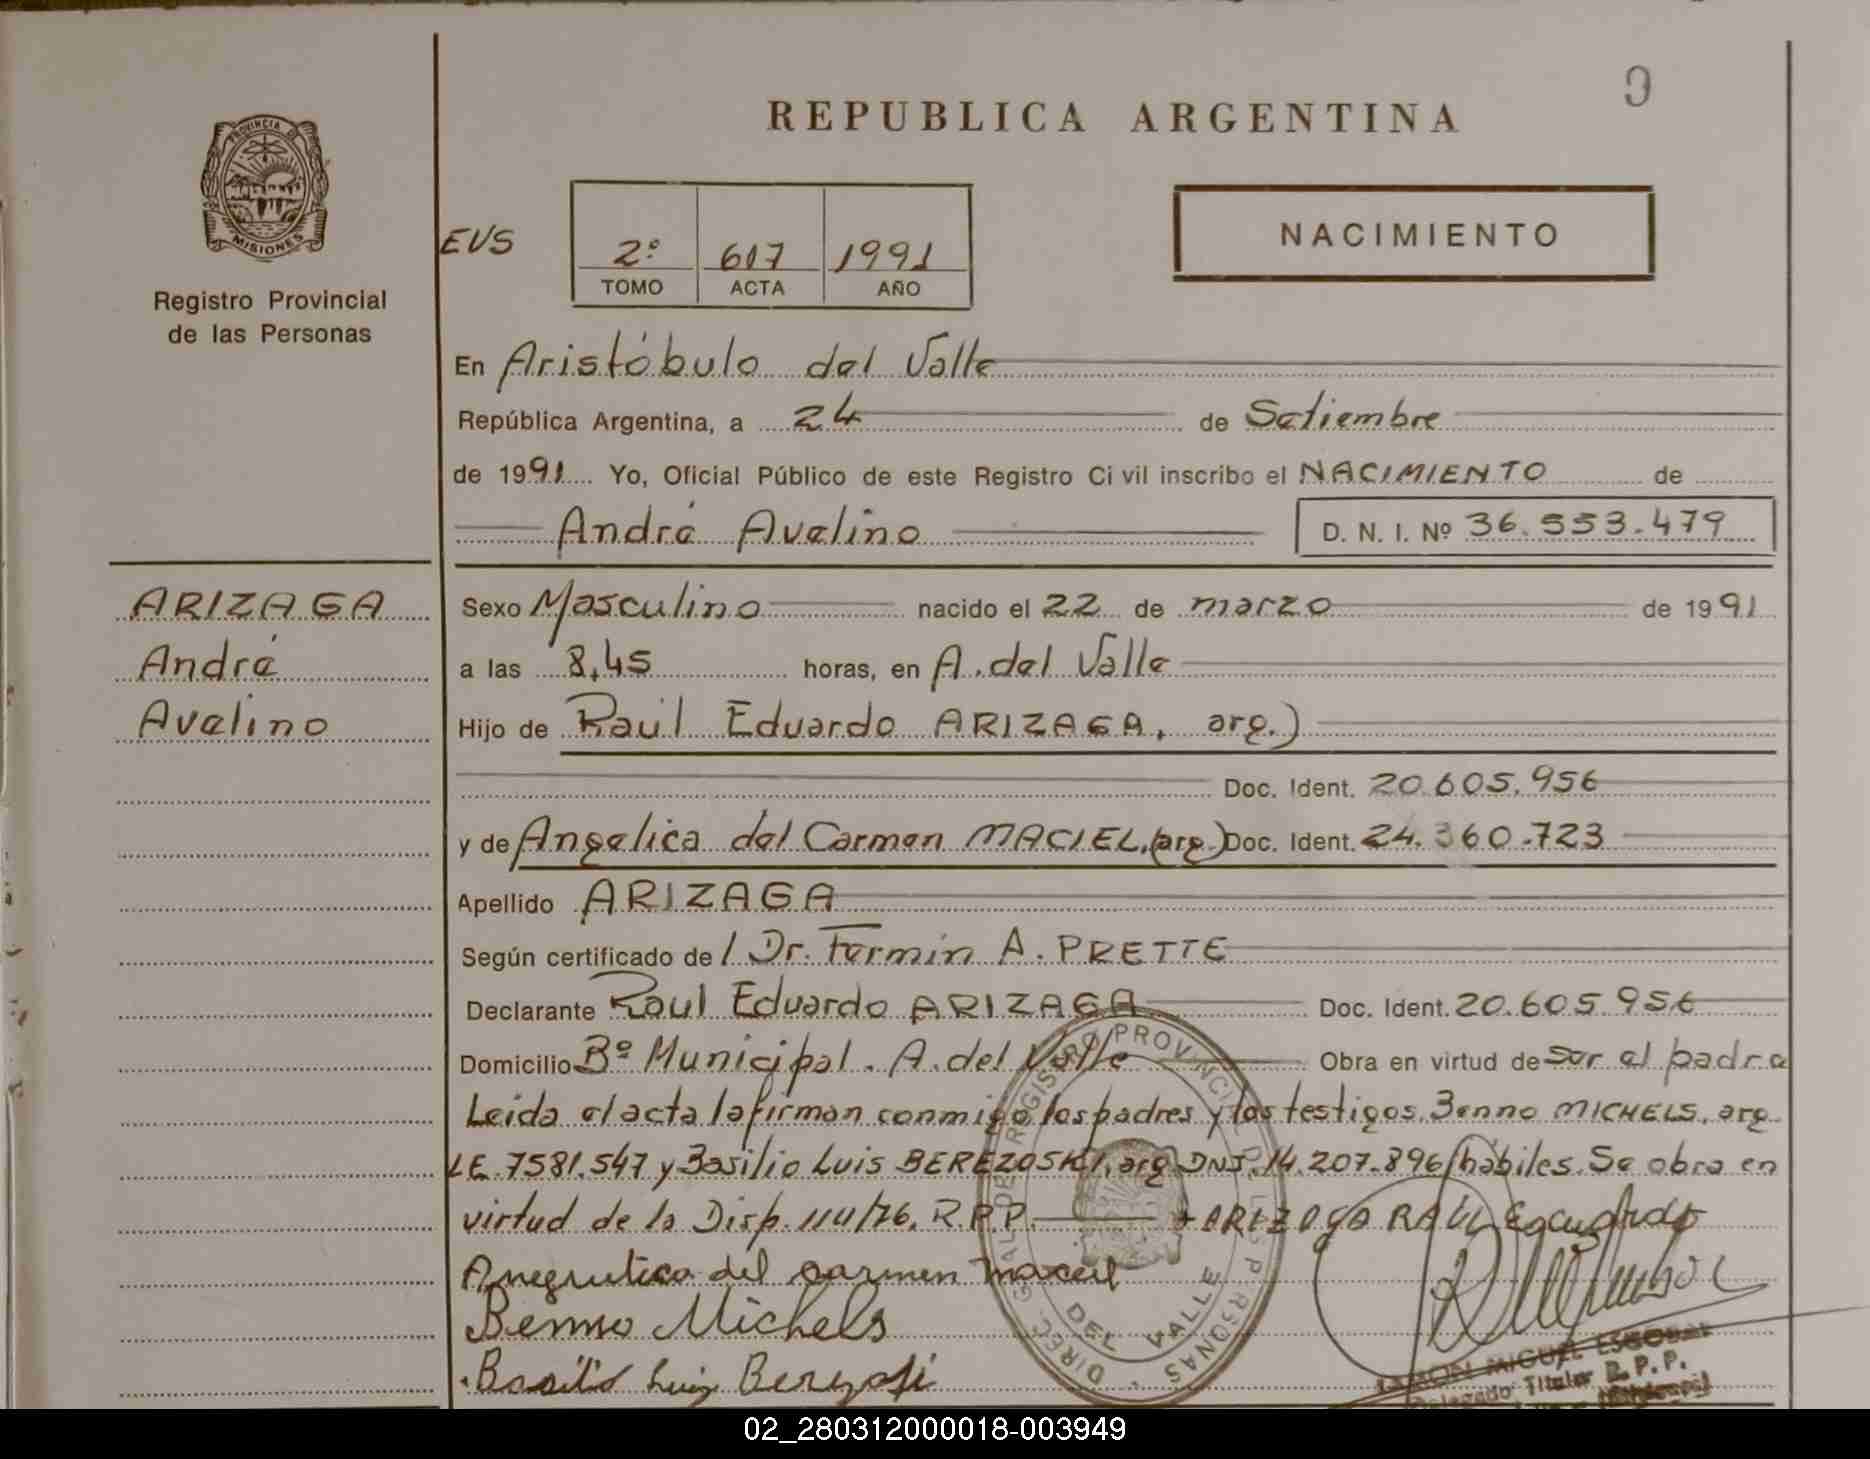 9
REPUBLICA ARGENTINA
PROVINCIA DE
MISIONES
Registro Provincial
de las Personas
EVS
2º 617 1991
TOMO ACTA AÑO
NACIMIENTO
En Aristóbulo del Valle
República Argentina, a 24 de Setiembre
de 1991 Yo, Oficial Público de este Registro Civil inscribo el NACIMIENTO de
André Avelino D. N. I. Nº 36.553.479
ARIZAGA
André
Avelino
Sexo Masculino nacido el 22 de marzo de 1991
a las 8,45 horas, en A. del Valle
Hijo de Raúl Eduardo ARIZAGA, arg.)
Doc. Ident. 20.605.956
y de Angelica del Carmen MACIEL, (arg.) Doc. Ident. 24.360.723
Apellido ARIZAGA
Según certificado de / Dr. Fermin A. PRETTE
Declarante Raul Eduardo ARIZAGA Doc. Ident. 20.605.956
Domicilio Bº Municipal. A. del Valle Obra en virtud de ser el padre
Leida el acta la firman conmigo los padres y los testigos, Benno MICHELS, arg.
LE. 7581.547 y Basilio Luis BEREZOSKI, arg DNI. 14.207.896/hábiles. Se obra en
virtud de la Disp. 114/76. R.P.P. ARIZAGA RAUL Eduardo
del carmen maciel
Benno Michels
Basilio Luis
DIREC. GRAL. DE REGISTRO PROVINCIAL DE LAS PERSONAS
DEL VALLE
RAMON MIGUEL ESCOBAR
Delegado Titular R.P.P.
02_280312000018-003949